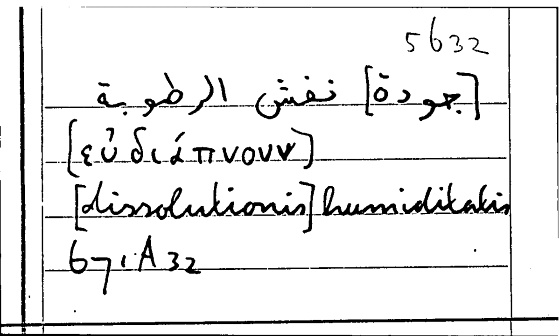 5632
[جودة] نفش الرطوبة
[εὐδιάπνουν]
[dissolutionis] humiditatis
671A32